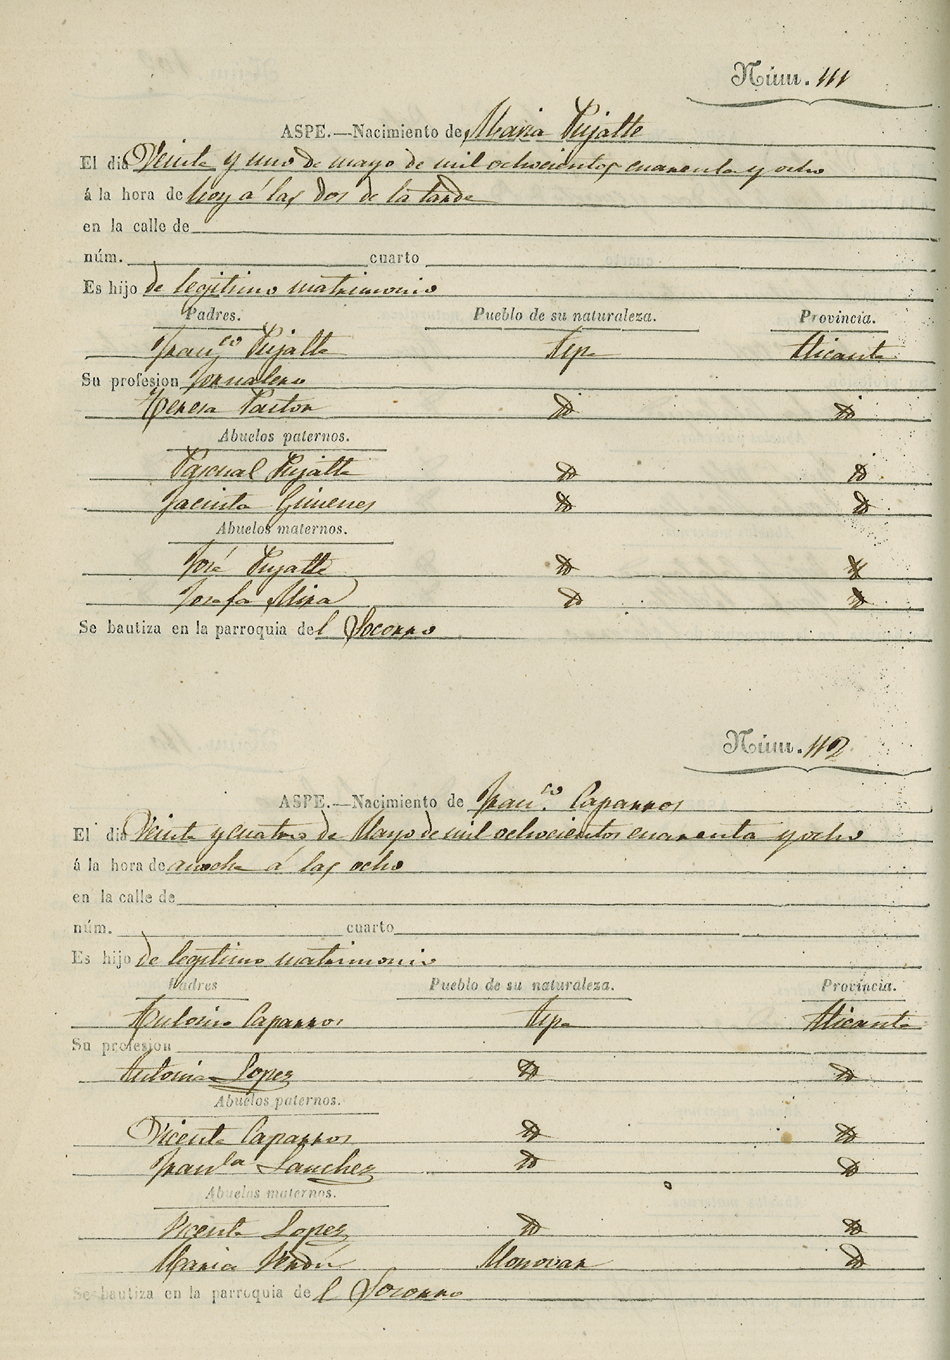 Núm. 111
ASPE.—Nacimiento de Maria Pujalte
El dia Veinte y uno de mayo de mil ochocientos cuarenta y ocho
á la hora de hoy á las dos de la tarde
en la calle de
núm. cuarto
Es hijo de legitimo matrimonio
Padres. Pueblo de su naturaleza. Provincia.
Fran.co Pujalte Aspe Alicante
Su profesion Jornalero
Teresa Pastor id id
Abuelos paternos.
Pascual Pujalte id id
Jacinta Gimenes id id
Abuelos maternos.
José Pujalte id id
Josefa Mira id id
Se bautiza en la parroquia del Socorro
Núm. 112
ASPE.—Nacimiento de Fran.co Caparros
El dia Veinte y cuatro de Mayo de mil ochocientos cuarenta y ocho
á la hora de anoche á las ocho
en la calle de
núm. cuarto
Es hijo de legitimo matrimonio
Padres Pueblo de su naturaleza. Provincia.
Antonio Caparros Aspe Alicante
Su profesion
Antonia Lopez id id
Abuelos paternos.
Vicente Caparros id id
Fran.ca Sanchez id id
Abuelos maternos.
Vicente Lopez id id
Maria Verdú Monovar id
Se bautiza en la parroquia de l Socorro